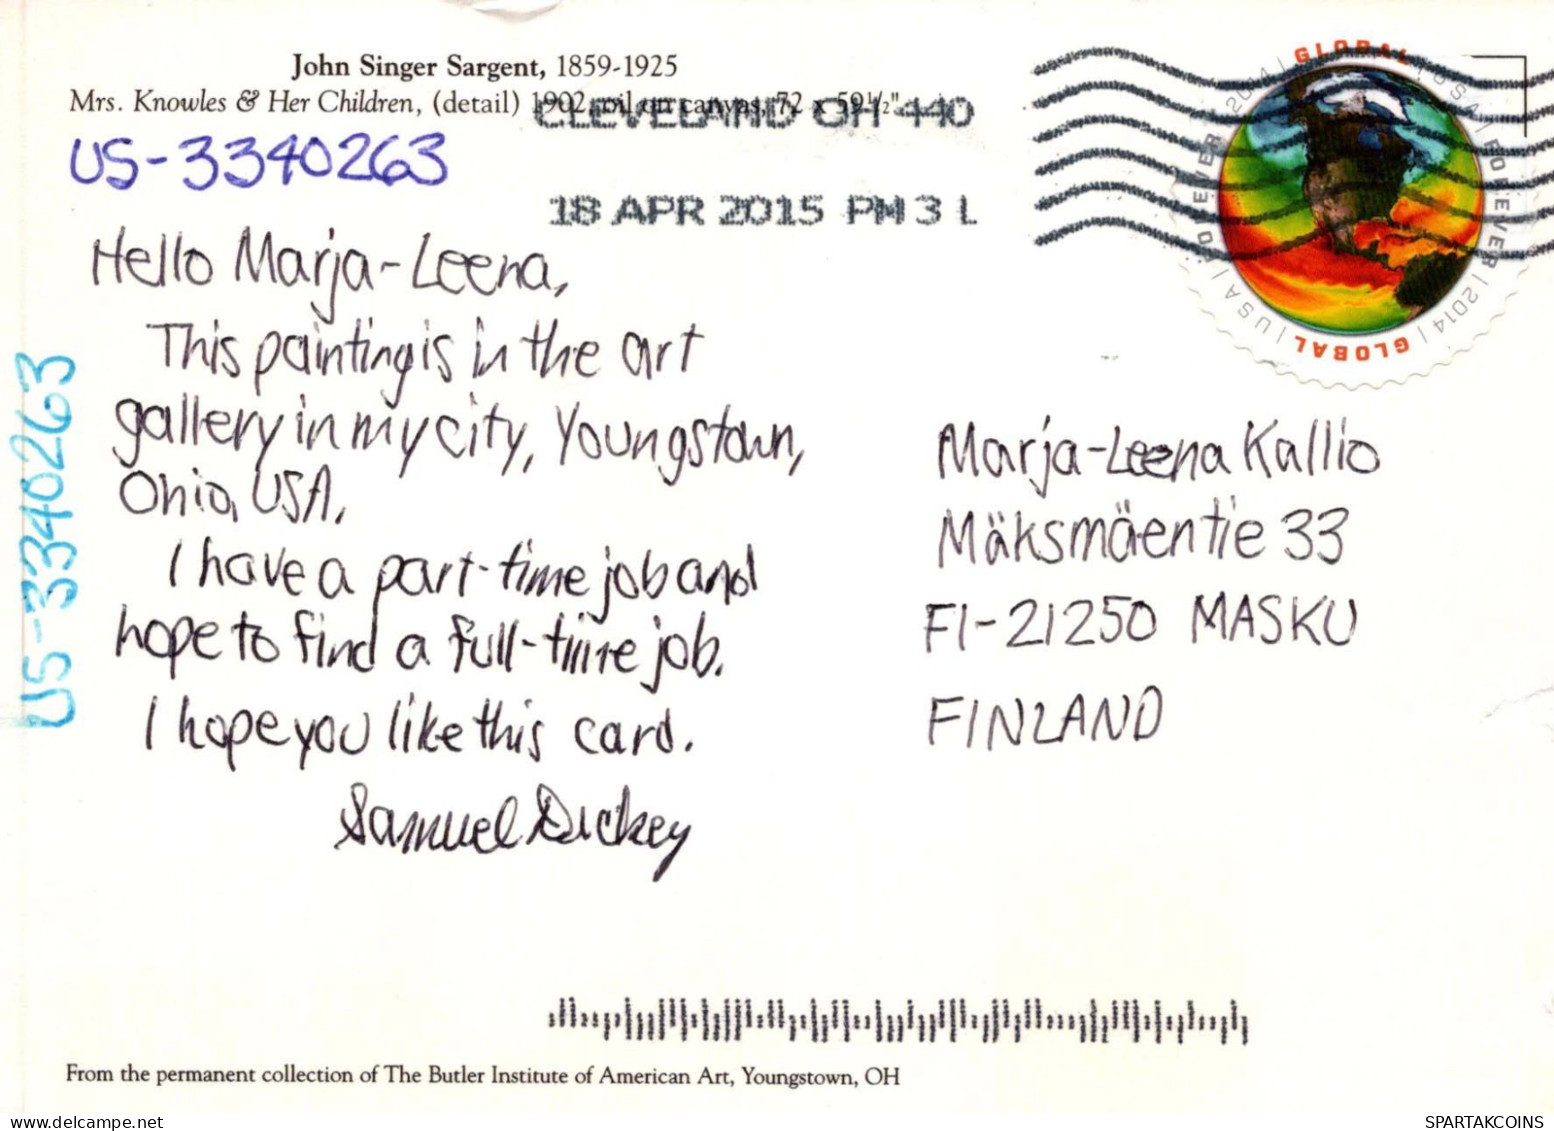 John Singer Sargent, 1859-1925
Mrs. Knowles & Her Children, (detail) 1902, oil on canvas, 72 x 59½"
CLEVELAND OH 440
18 APR 2015 PM 3 L
US-3340263
Hello Marja-Leena,
This painting is in the art
gallery in my city, Youngstown,
Ohio, USA.
I have a part-time job and
hope to find a full-time job.
I hope you like this card.
Samuel Dickey
US-3340263
GLOBAL | USA | FOREVER | 2014 | GLOBAL | USA | FOREVER | 2014 |
Marja-Leena Kallio
Mäksmäentie 33
FI-21250 MASKU
FINLAND
From the permanent collection of The Butler Institute of American Art, Youngstown, OH
SPARTAKCOINS